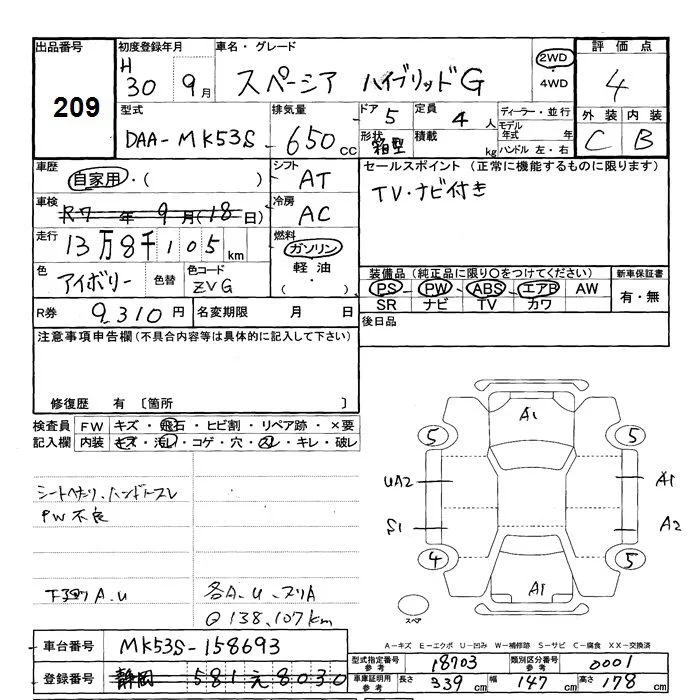 出品番号
209
初度登録年月
H
30 9月
車名・グレード
スペーシア ハイブリッドG
2WD
・
4WD
評価点
4
外装 内装
C B
型式
DAA-MK53S
排気量
650 cc
ドア 5
形状 箱型
定員
4 人
積載
kg
ディーラー・並行
モデル
年式 年
ハンドル 左・右
車歴
自家用・( )
シフト
AT
車検
R7年 9月(18日)
冷房
AC
走行
13万8千105km
燃料
ガソリン
軽油
( ・ )
色
アイボリー
色替
色コード
ZVG
R券 9,310円
名変期限 月 日
セールスポイント(正常に機能するものに限ります)
TV・ナビ付き
装備品(純正品に限り○をつけてください)
PS PW ABS エアB AW
SR ナビ TV カワ
新車保証書
有・無
後日品
注意事項申告欄(不具合内容等は具体的に記入して下さい)
修復歴 有 〔箇所 〕
検査員
記入欄
FW キズ・飛石・ヒビ割・リペア跡・×要
内装 キズ・汚レ・コゲ・穴・スレ・キレ・破レ
シートヘタリ、ハンドルスレ
PW不良
下廻りA.U
各A.U.スリA
@138,107km
A1
5 5
UA2 A1
S1 A2
4 5
A1
スペア
A-キズ E-エクボ U-凹み W-補修跡 S-サビ C-腐食 XX-交換済
車台番号 MK53S-158693
登録番号 静岡 581 え 8030
型式指定番号
参考
18703
類別区分番号
参考
0001
車庫証明用
参考
長さ 339cm 幅 147cm 高さ 178cm